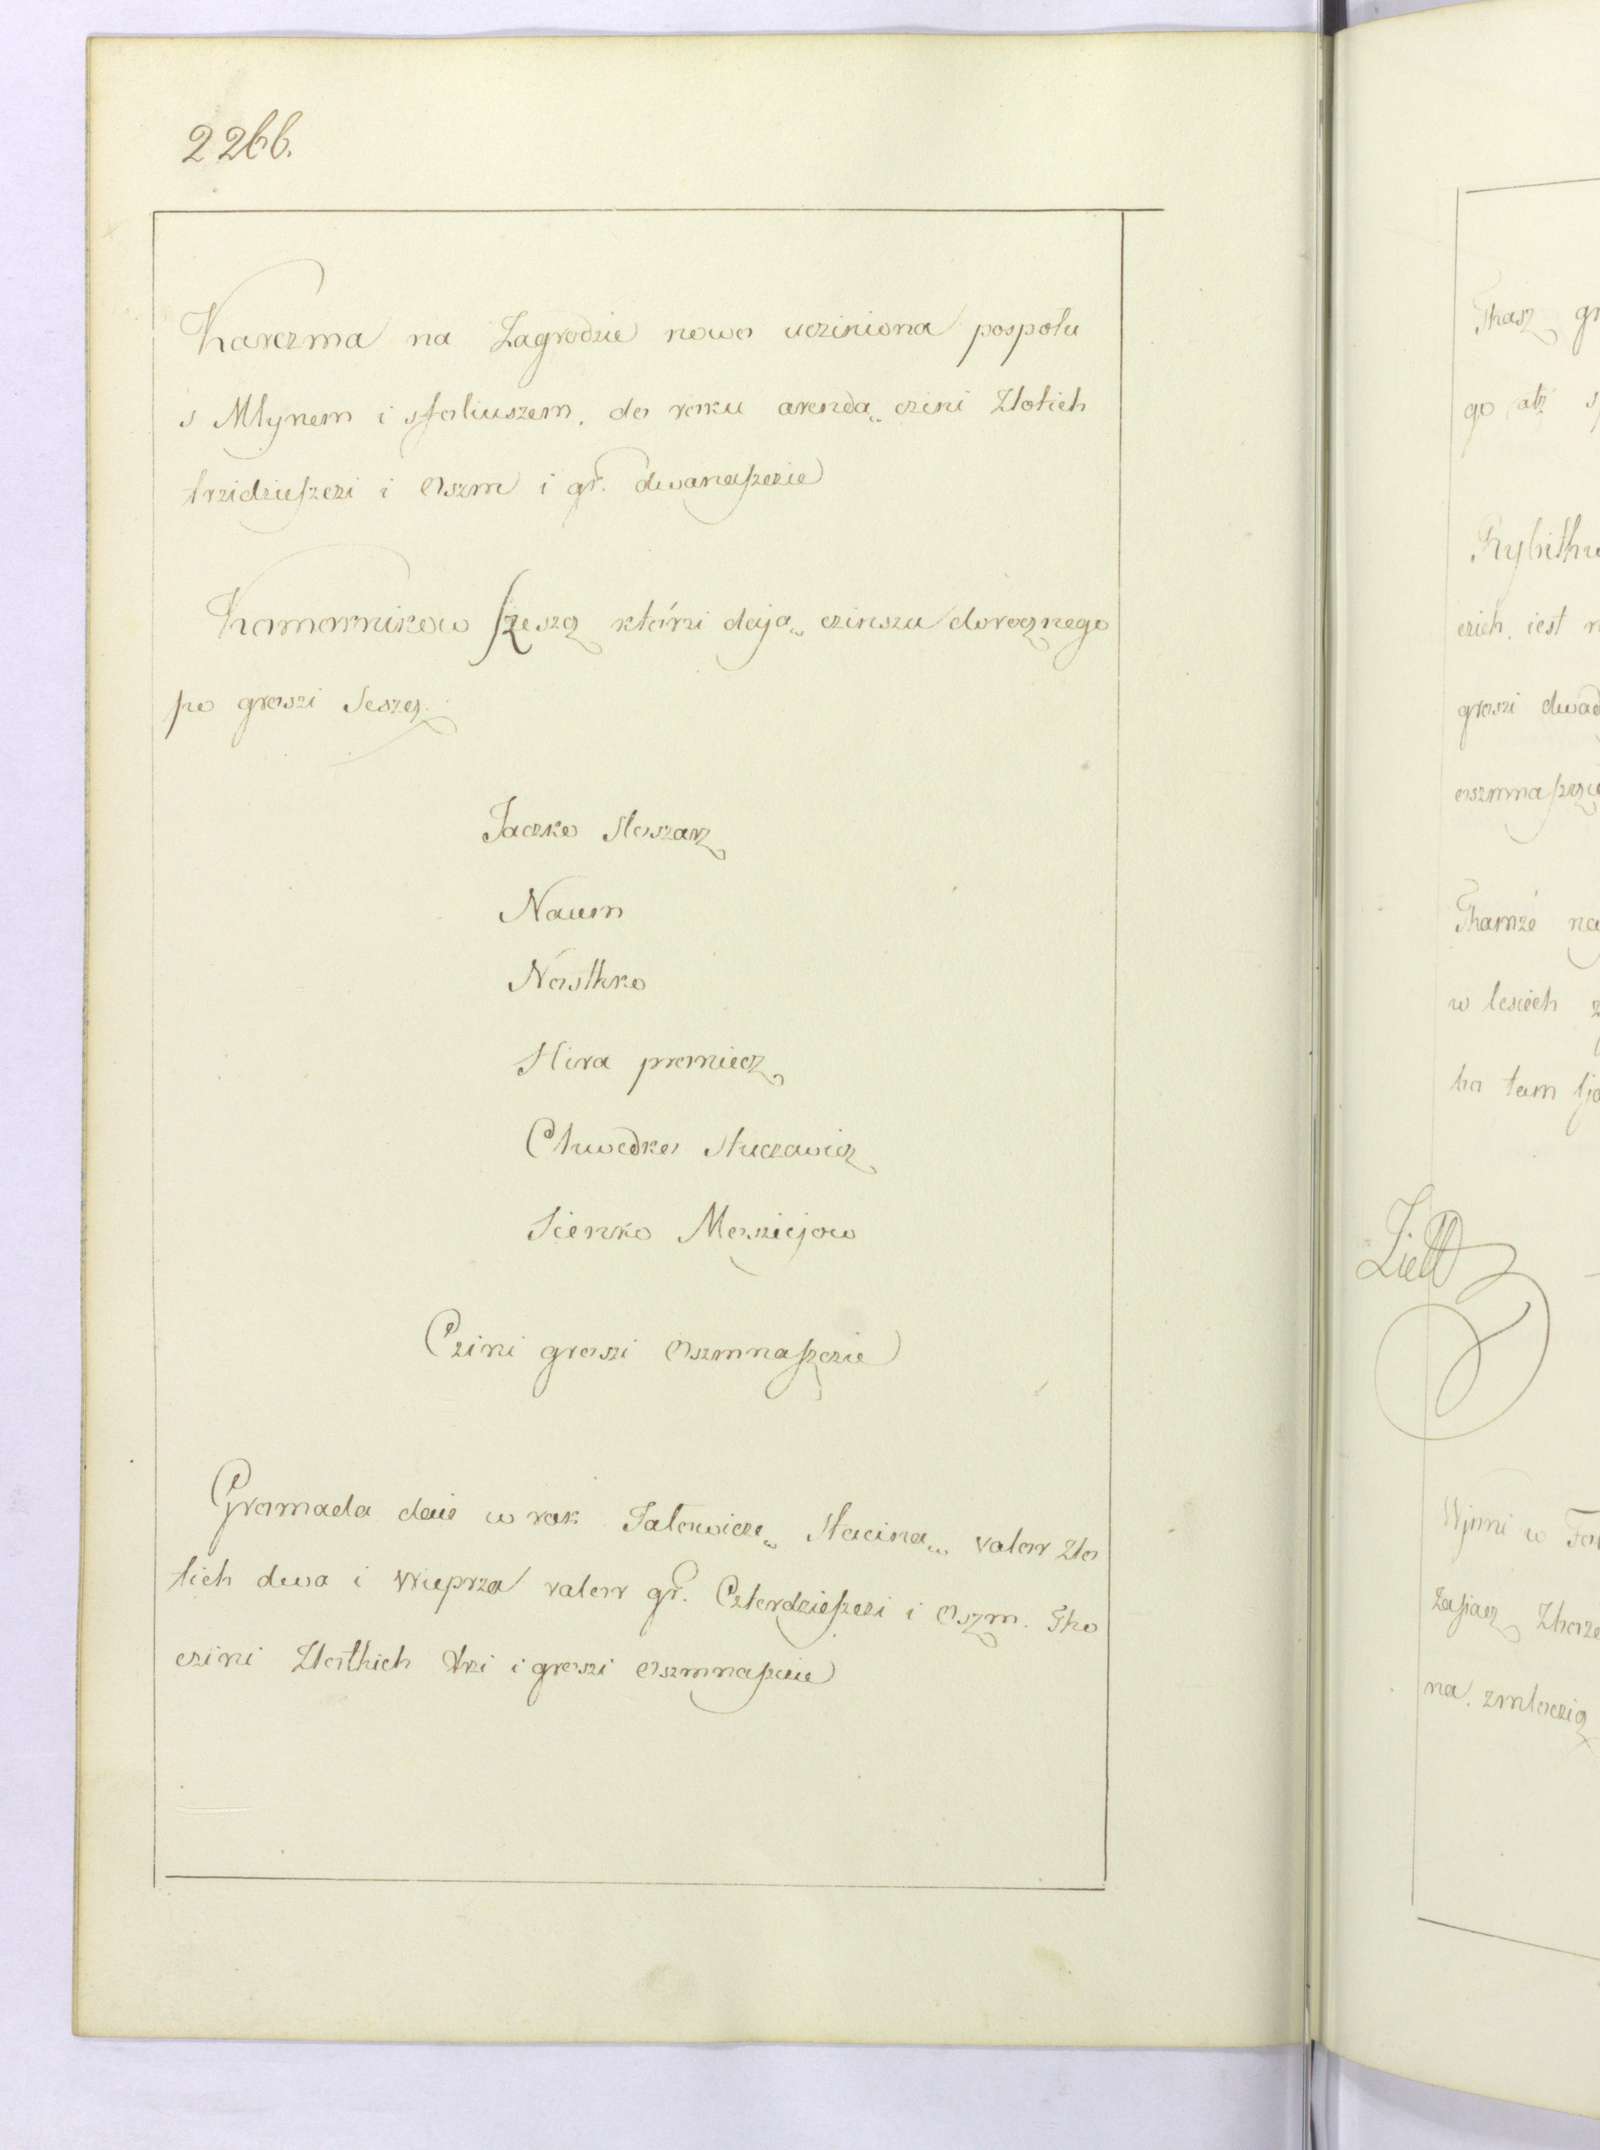 2266.
Karczma na Zagrodzie nowo ucziniona pospołu
s Młynem i sfoliuszem, do roku arendą czini Złotich
trzidzieszczi i Oszm i gr. dwanaszczie
Komornikow szeszcz którzi dają czinszu dorocznego
po groszi Seszcz.
Jaczko Sloszarz
Naum
Nastko
Hira promiecz
Chwedko Huczawicz
Sienko Mosziejow
Czini groszi Oszmnaszczie
Gromada daie w rok Jałowiczę, Stacina, valor Zło
tich dwa i Wieprza valor gr. Czterdzieszczi i Oszm. Tho
czini Złothich Trzi i groszi Oszmnaszcie
Thasz
go
Rybithw
czich, iest
groszi dwad
oszmnaszcz
Thamże na
w lesiech
tam
Wjmi w
zasiacz
na. zmłoczicz